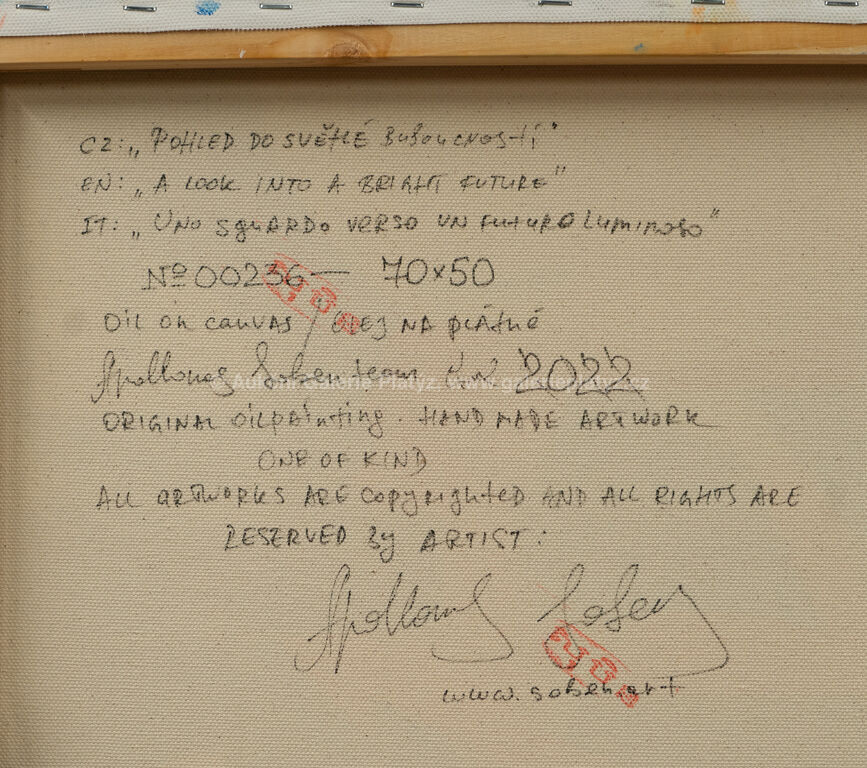 CZ: „POHLED DO SVĚTLÉ BUDOUCNOSTI"
EN: „A LOOK INTO A BRIGHT FUTURE"
IT: „UNO SGUARDO VERSO UN FUTURO LUMINOSO"
Nº 00236 — 70x50
OIL ON CANVAS / OLEJ NA PLÁTNĚ
Apollonas Soben 2022
© Aukční Galerie Platýz, www.galerieplatyz.cz
ORIGINAL OILPAINTING. HAND MADE ARTWORK
ONE OF KIND
ALL ARTWORKS ARE COPYRIGHTED AND ALL RIGHTS ARE
RESERVED BY ARTIST:
Apollonas Soben
www.soben.art